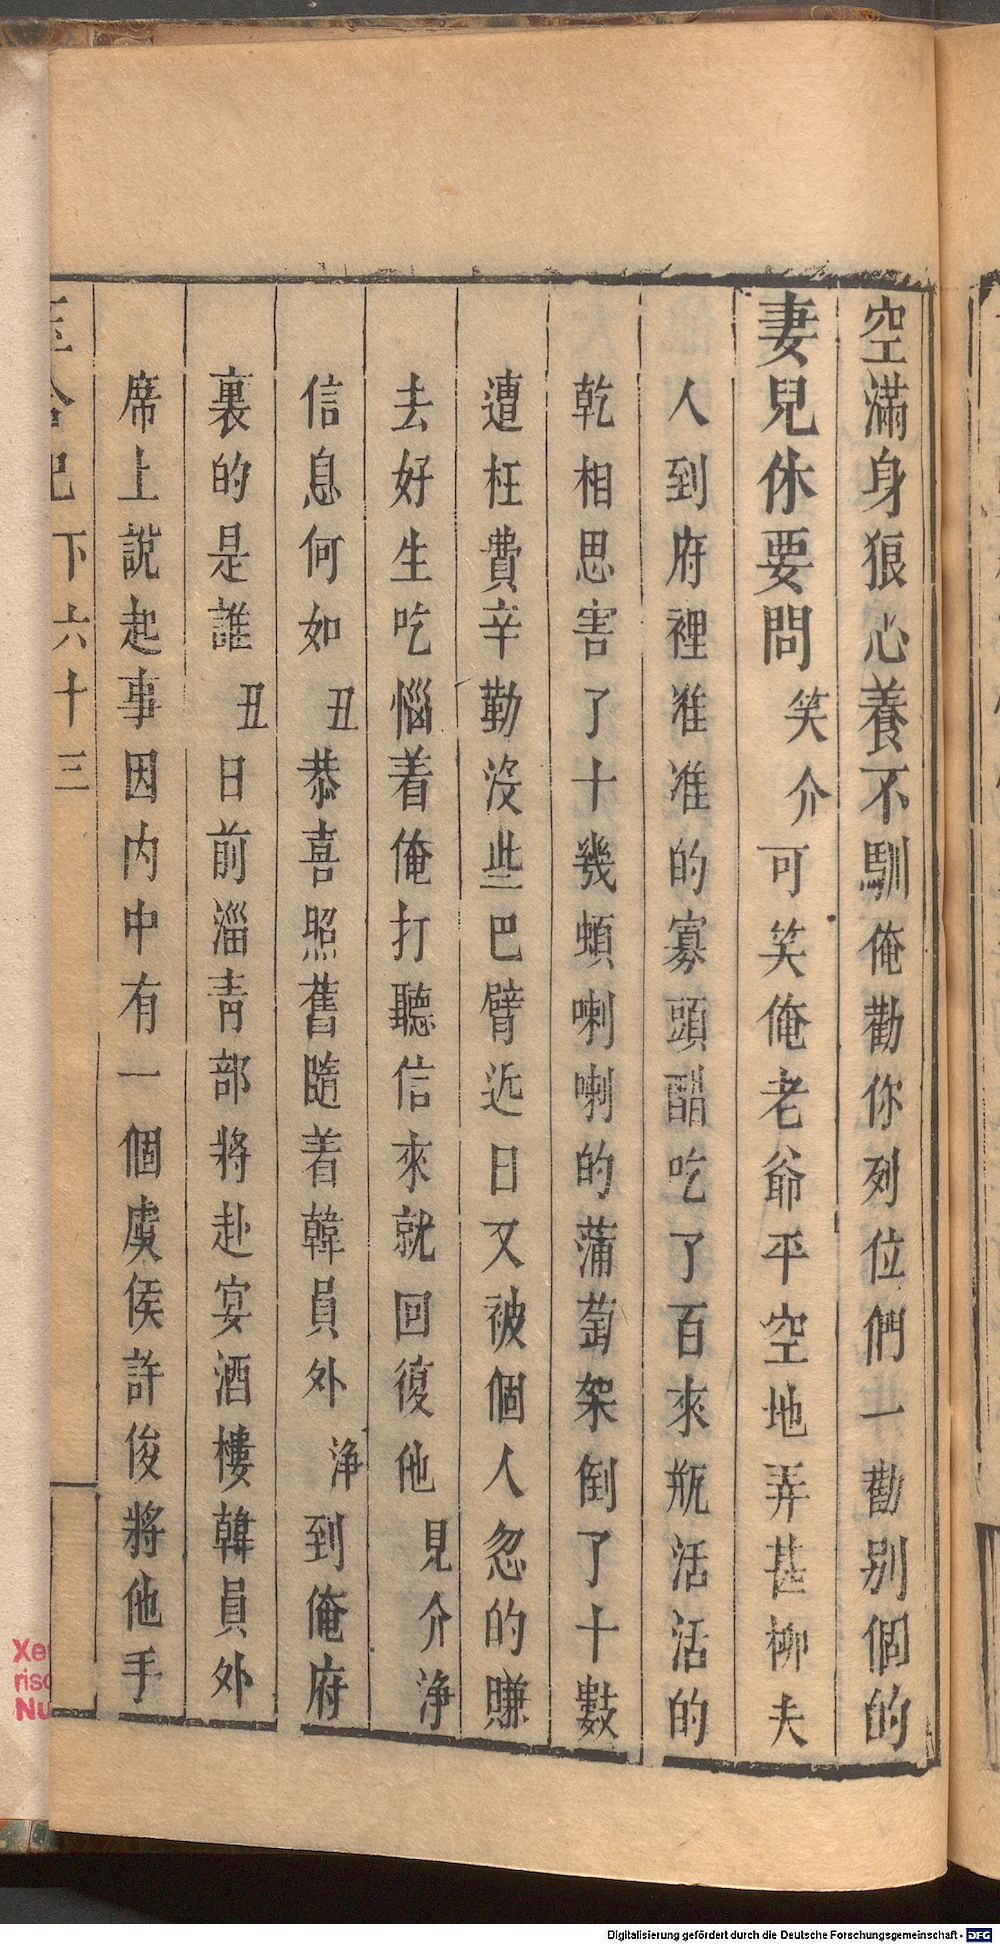 空滿身狼心養不馴俺勸你列位們一勸别個的
妻兒休要問笑介可笑俺老爺平空地弄甚柳夫
人到府裡准准的寡頭醋吃了百來瓶活活的
乾相思害了十幾頓喇喇的蒲萄架倒了十數
遭枉費辛勤沒些巴臂近日又被個人忽的賺
去好生吃惱着俺打聽信來就回復他見介淨
信息何如丑恭喜照舊隨着韓員外淨到俺府
裏的是誰丑日前淄靑部將赴宴酒樓韓員外
席上說起事因内中有一個虞侯許俊將他手
玉合記 下六十三
Xe
ris
Nu
Digitalisierung gefördert durch die Deutsche Forschungsgemeinschaft - DFG